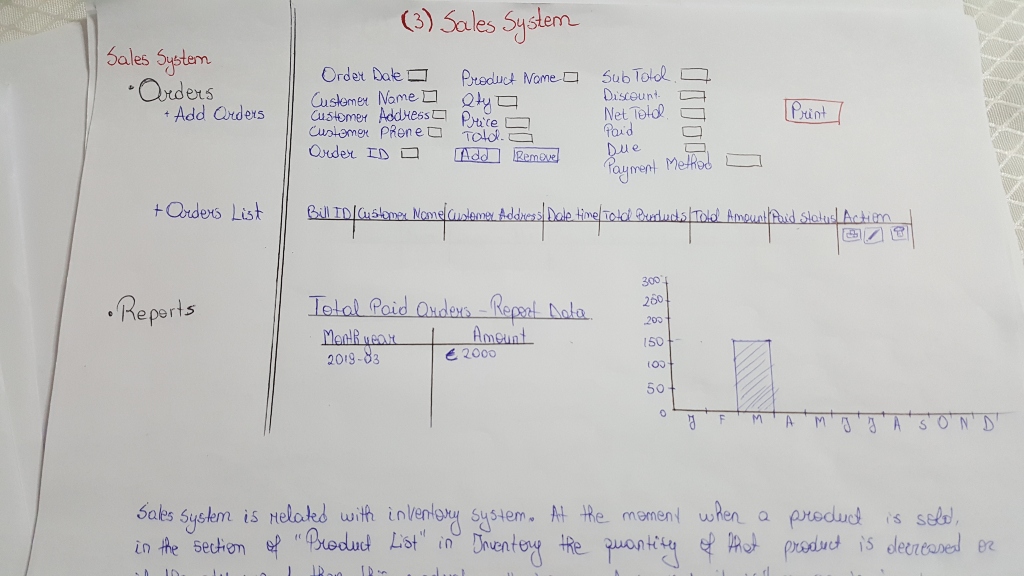 (3) Sales System
Sales System
• Orders
+ Add Orders
Order Date
Customer Name
Customer Address
Customer Phone
Order ID
Product Name
Qty
Price
Total
Add Remove
SubTotal
Discount
Net Total
Paid
Due
Payment Method
Print
+ Orders List
Bill ID Customer Name Customer Address Date time Total Products Total Amount Paid Status Action
• Reports
Total Paid Orders - Report Data
Month year Amount
2019-03 € 2000
300
250
200
150
100
50
0
J F M A M J J A S O N D
Sales System is related with inventory system. At the moment when a product is sold,
in the section of "Product List" in Inventory the quantity of that product is decreased or